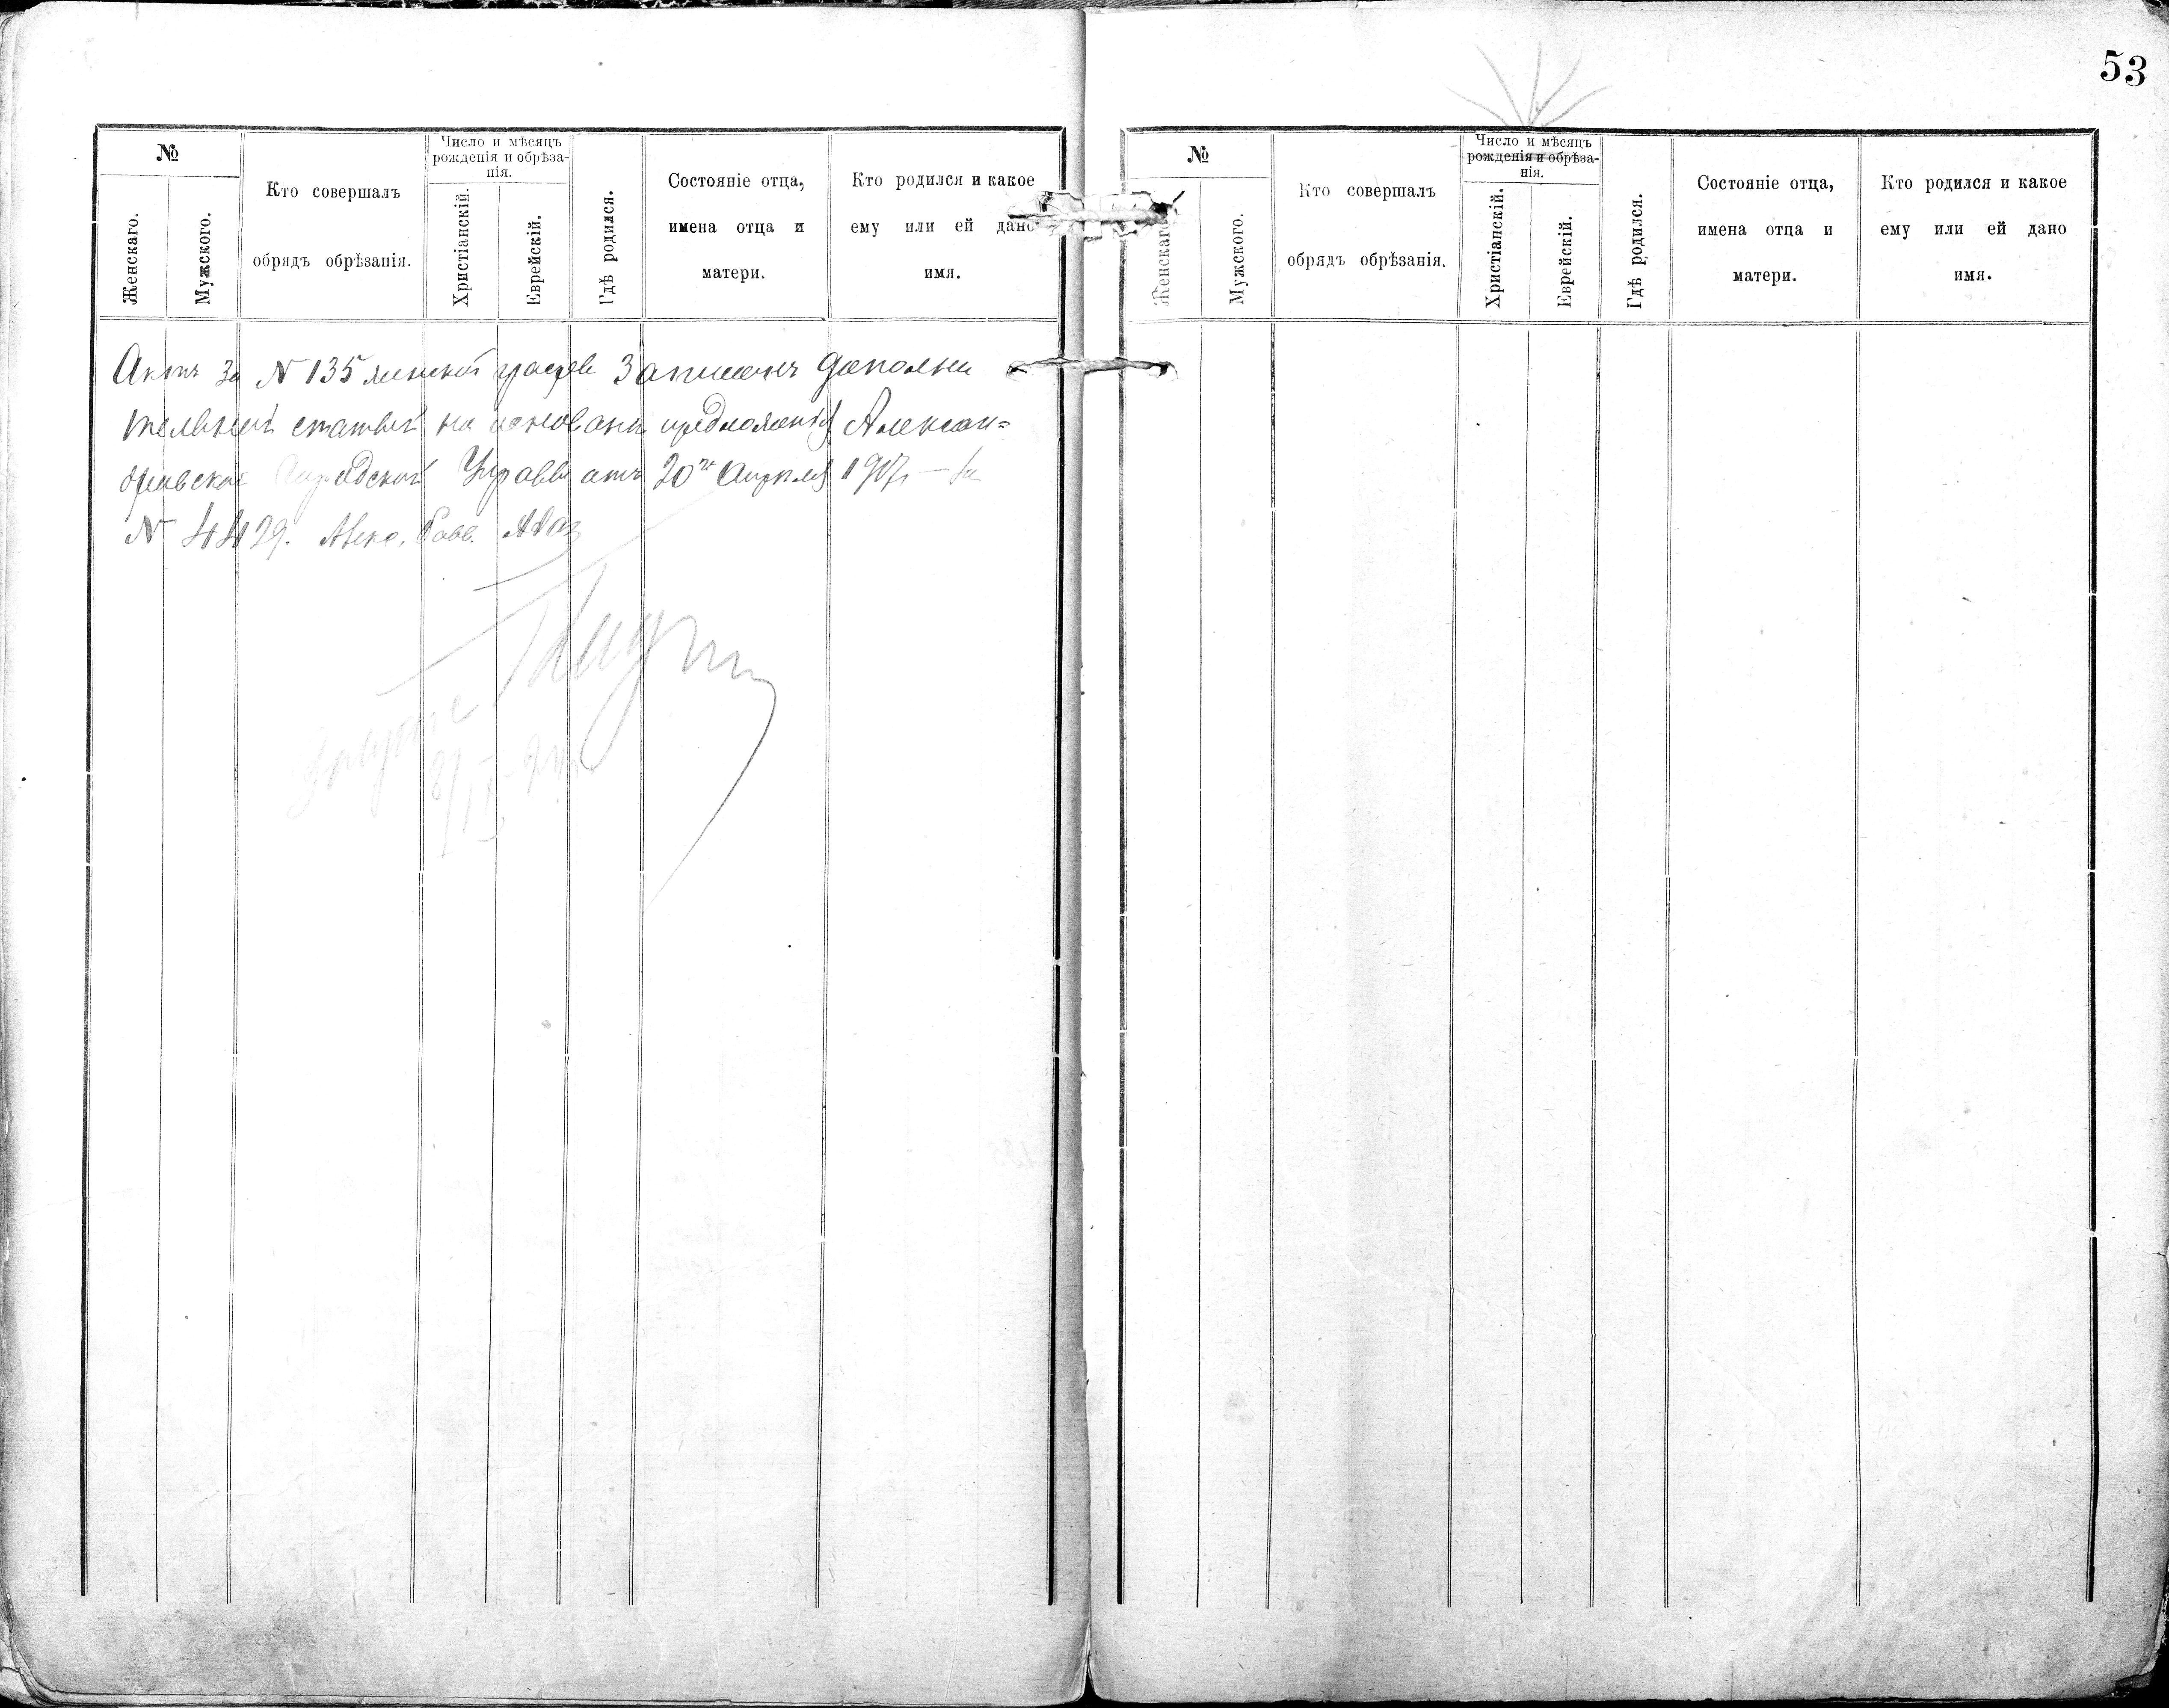 53
№
Женскаго.
Мужского.
Кто совершалъ
обрядъ обрѣзанія.
Число и мѣсяцъ
рожденія и обрѣза-
нія.
Христіанскій.
Еврейскій.
Гдѣ родился.
Состояніе отца,
имена отца и
матери.
Кто родился и какое
ему или ей дано
имя.
Актъ за N 135 женской графы записанъ дополни
тельной статьей на основани предложенія Алексан=
дровской Городской Управы отъ 20го Апреля 1907г за
N 4429. Алекс. Равв.
№
Женскаго
Мужского.
Кто совершалъ
обрядъ обрѣзанія.
Число и мѣсяцъ
рожденія и обрѣза-
нія.
Христіанскій.
Еврейскій.
Гдѣ родился.
Состояніе отца,
имена отца и
матери.
Кто родился и какое
ему или ей дано
имя.